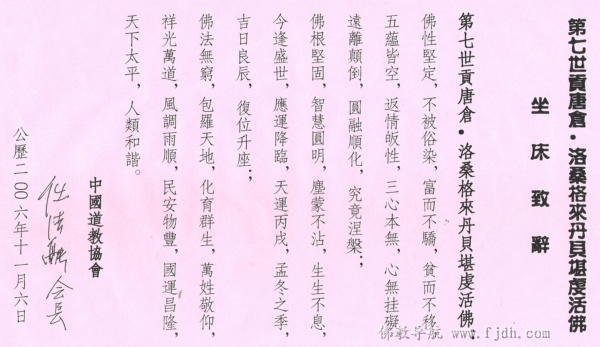 第七世貢唐倉·洛桑格來丹貝堪虔活佛
坐床致辭
第七世貢唐倉·洛桑格來丹貝堪虔活佛：
佛性堅定，不被俗染，富而不驕，貧而不移，
五蘊皆空，返情皈性，三心本無，心無挂礙，
遠離顛倒，圓融順化，究竟涅槃；
佛根堅固，智慧圓明，塵蒙不沾，生生不息，
今逢盛世，應運降臨，天運丙戌，孟冬之季，
吉日良辰，復位升座；
佛法無窮，包羅天地，化育群生，萬姓敬仰，
祥光萬道，風調雨順，民安物豐，國運昌隆，
天下太平，人類和諧。
中國道教協會
任法融会長
公歷二00六年十一月六日
佛教导航 www.fjdh.com